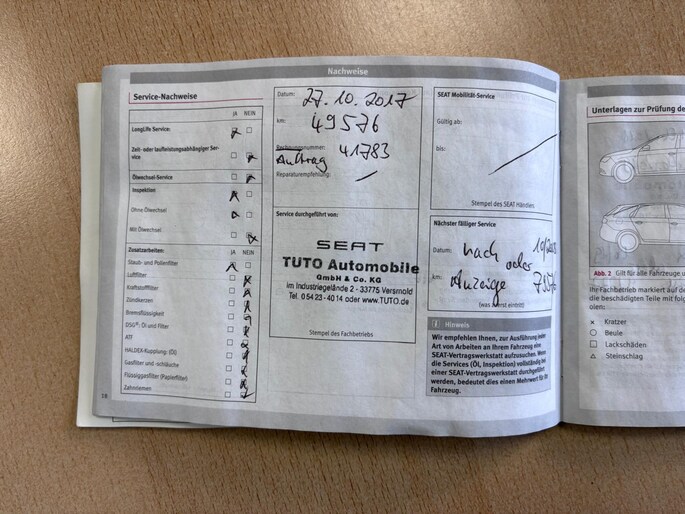 Nachweise
Service-Nachweise
JA NEIN
LongLife Service:
Zeit- oder laufleistungsabhängiger Ser-
vice
Ölwechsel-Service
Inspektion
Ohne Ölwechsel
Mit Ölwechsel
Zusatzarbeiten: JA NEIN
Staub- und Pollenfilter
Luftfilter
Kraftstofffilter
Zündkerzen
Bremsflüssigkeit
DSG®: Öl und Filter
ATF
HALDEX-Kupplung: (Öl)
Gasfilter und -schläuche
Flüssiggasfilter (Papierfilter)
Zahnriemen
18
Datum: 27.10.2017
km: 49576
Rechnungsnummer: 41783
Auftrag
Reparaturempfehlung:
Service durchgeführt von:
SEAT
TUTO Automobile
GmbH & Co. KG
im Industriegelände 2 - 33775 Versmold
Tel. 0 54 23 - 40 14 oder www.TUTO.de
Stempel des Fachbetriebs
SEAT Mobilität-Service
Gültig ab:
bis:
Stempel des SEAT Händlers
Nächster fälliger Service
Datum: nach oder
km: Anzeige
(was zuerst eintritt)
i Hinweis
Wir empfehlen Ihnen, zur Ausführung jeder
Art von Arbeiten an Ihrem Fahrzeug eine
SEAT-Vertragswerkstatt aufzusuchen. Wenn
die Services (Öl, Inspektion) vollständig bei
einer SEAT-Vertragswerkstatt durchgeführt
werden, bedeutet dies einen Mehrwert für Ihr
Fahrzeug.
Unterlagen zur Prüfung de
Abb. 2 Gilt für alle Fahrzeuge
Ihr Fachbetrieb markiert auf de
die beschädigten Teile mit folge
olen:
× Kratzer
○ Beule
□ Lackschäden
△ Steinschlag